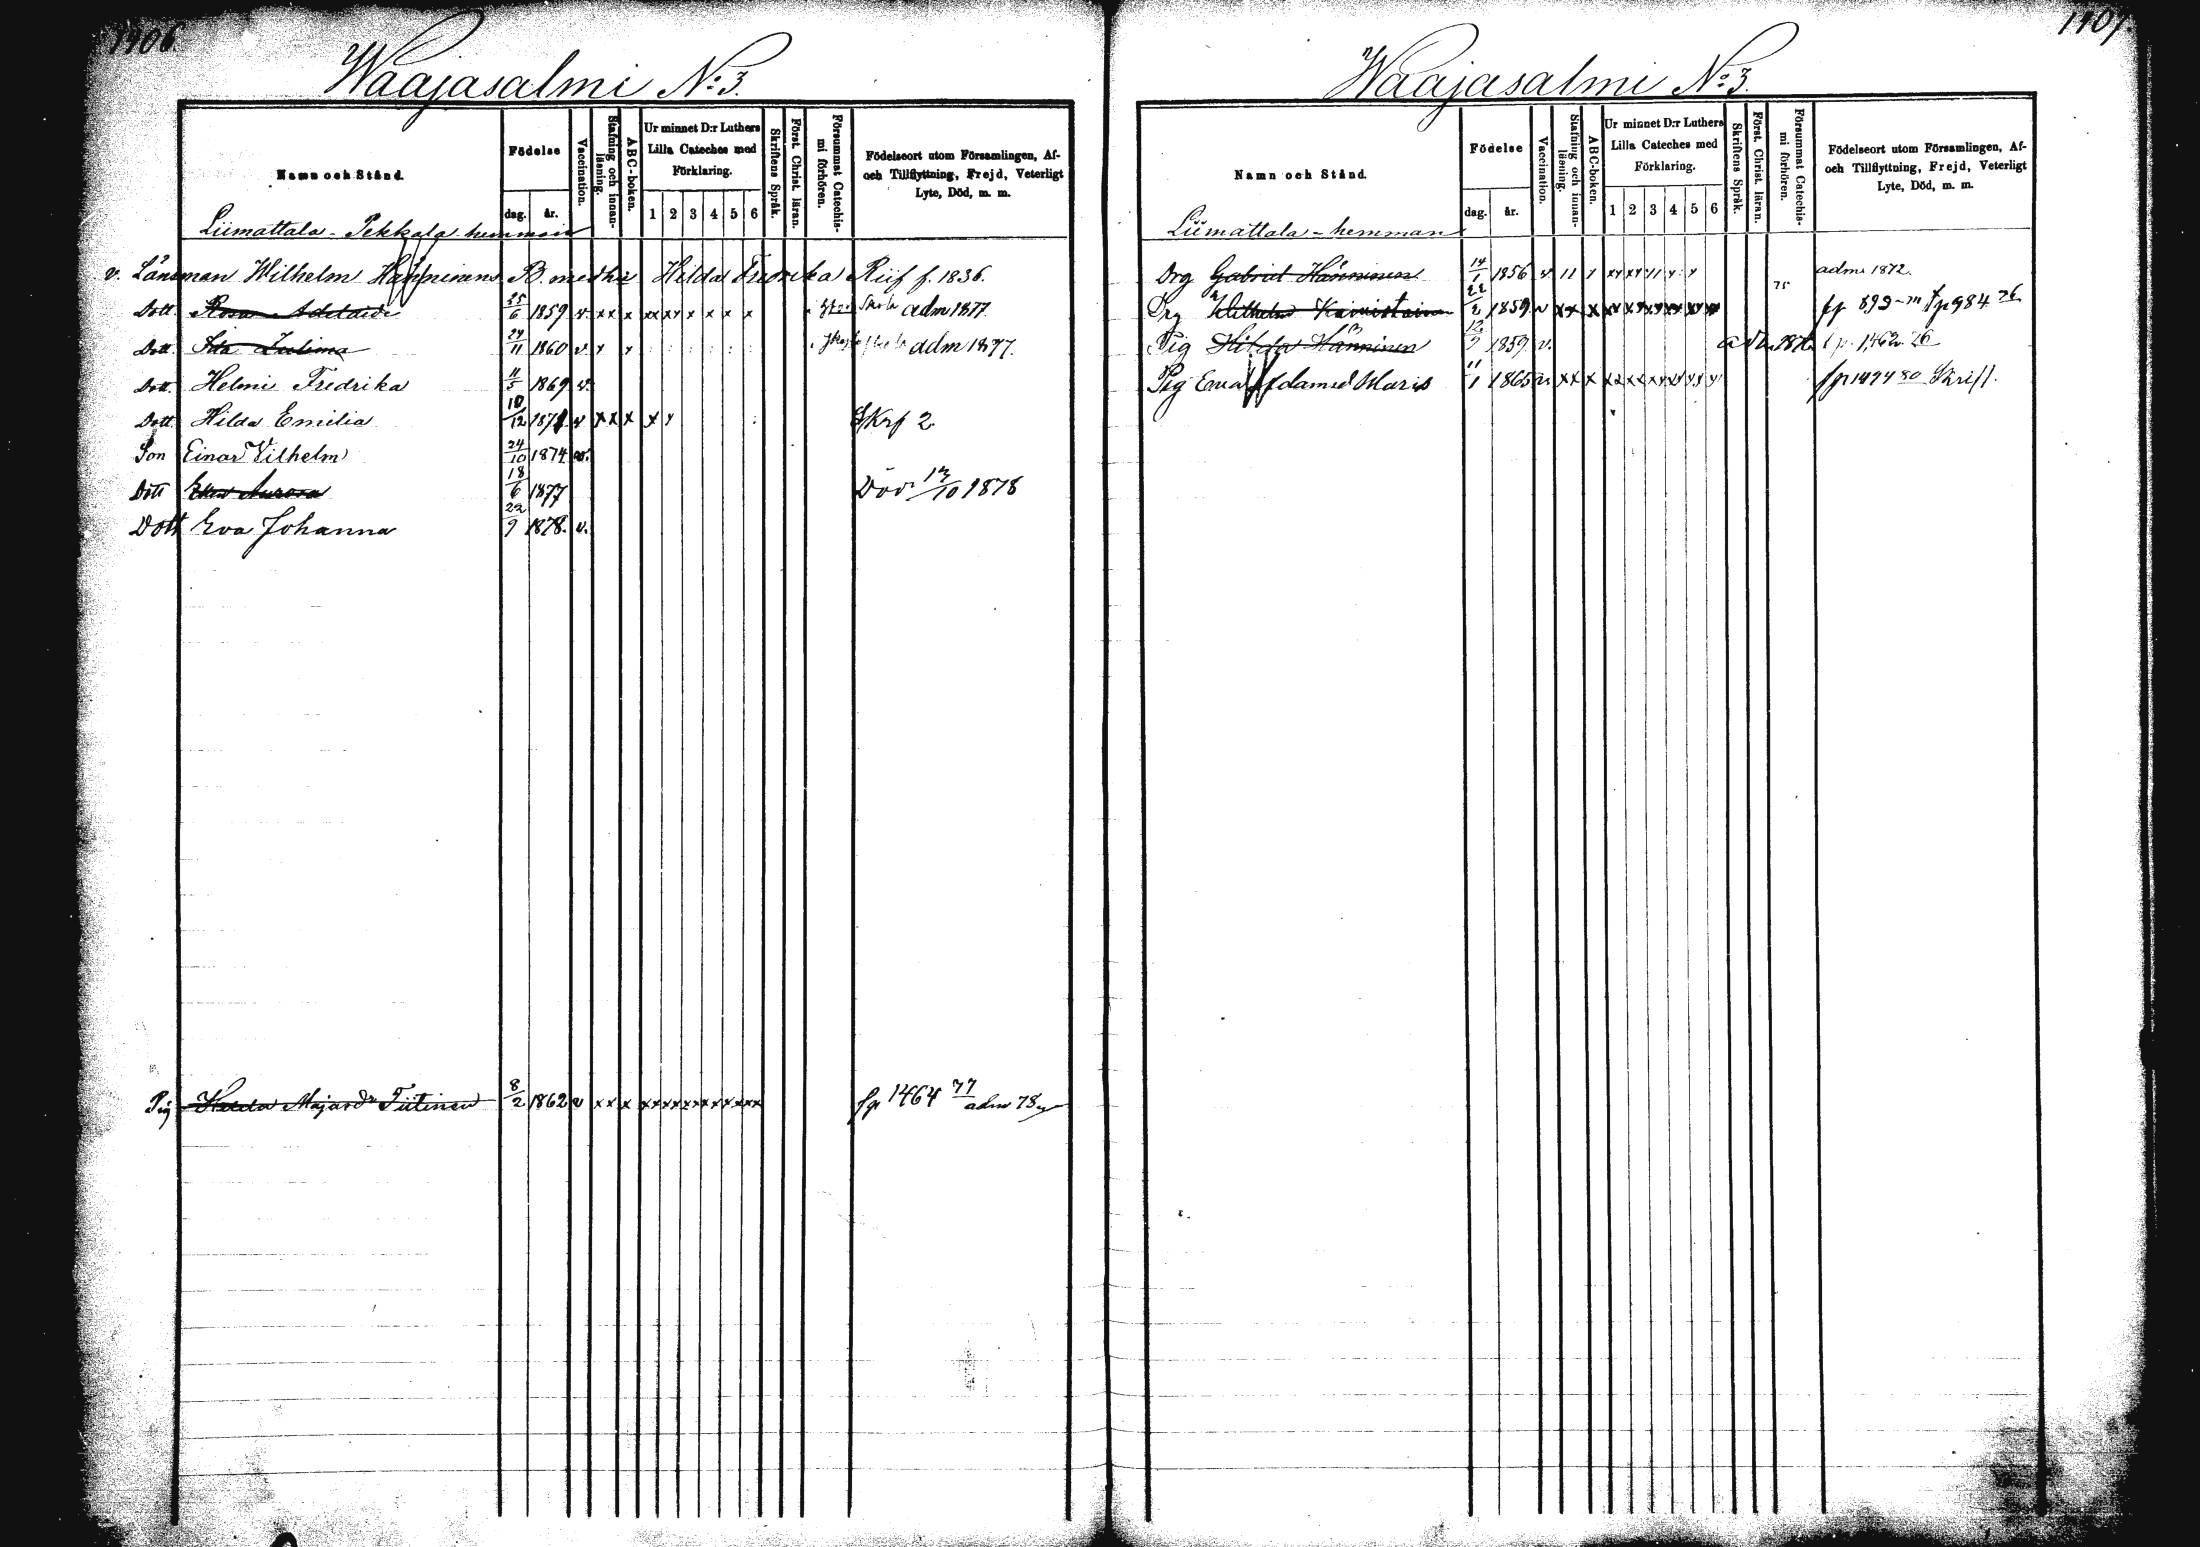 1406.
Waajasalmi No: 3.
Namn och Stånd.
Födelse
dag. år.
Vaccination.
Stafning och innanläsning.
ABC-boken.
Ur minnet D:r Luthers Lilla Cateches med Förklaring.
1 2 3 4 5 6
Skriftens Språk.
Först. Christ. läran.
Försummat Catechismi förhören.
Födelseort utom Församlingen, Af- och Tillflyttning, Frejd, Veterligt Lyte, Död, m. m.
Liimattala - Pekkala hemman
v. Länsman Wilhelm Hänninens B. med h: Hilda Fredrika Riif f. 1836.
Dott. Rosa Adelaide 25/6 1859 v. x x x xx xy x x x x adm 1877.
Dott. Zulima 24/11 1860 v adm 1877.
Dott. Helmi Fredrika 11/5 1869 v.
Dott Hilda Emilia 10/12 1871 v x x x x y Skrf 2.
Son Einar Vilhelm 24/10 1874 v.
Dott Aurora 18/6 1877 Död 1878
Dott Eva Johanna 22/9 1878. v.
Pig Majasdr Tiitinen 8/2 1862 v x x x fp 1464 77 adm 78
1407.
Waajasalmi No: 3.
Namn och Stånd.
Födelse
dag. år.
Vaccination.
Stafning och innanläsning.
ABC-boken.
Ur minnet D:r Luthers Lilla Cateches med Förklaring.
1 2 3 4 5 6
Skriftens Språk.
Först. Christ. läran.
Försummat Catechismi förhören.
Födelseort utom Församlingen, Af- och Tillflyttning, Frejd, Veterligt Lyte, Död, m. m.
Liimattala - hemman
Drg Gabriel Hänninen 14/1 1856 v 75 adm. 1872.
Drg Wilhelm 22/2 1859 v fp 892 fp 984 76
Pig Hilda Hänninen 12/9 1859 v. 1462 76
Pig Eeva Adamsd Maris 11/1 1865 v x x x fp 1474 80 Skrift.